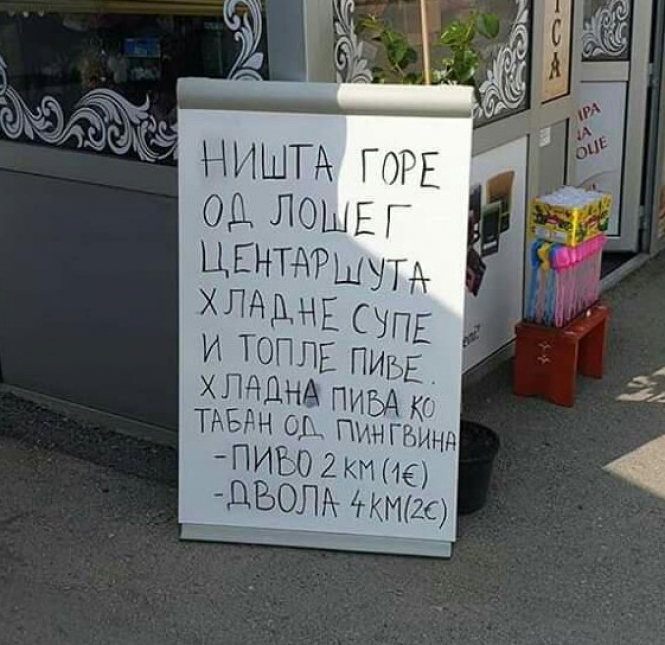 НИШТА ГОРЕ
ОД ЛОШЕГ
ЦЕНТАРШУТА
ХЛАДНЕ СУПЕ
И ТОПЛЕ ПИВЕ.
ХЛАДНА ПИВА КО
ТАБАН ОД ПИНГВИНА
-ПИВО 2 КМ (1€)
-ДВОЛА 4 КМ(2€)